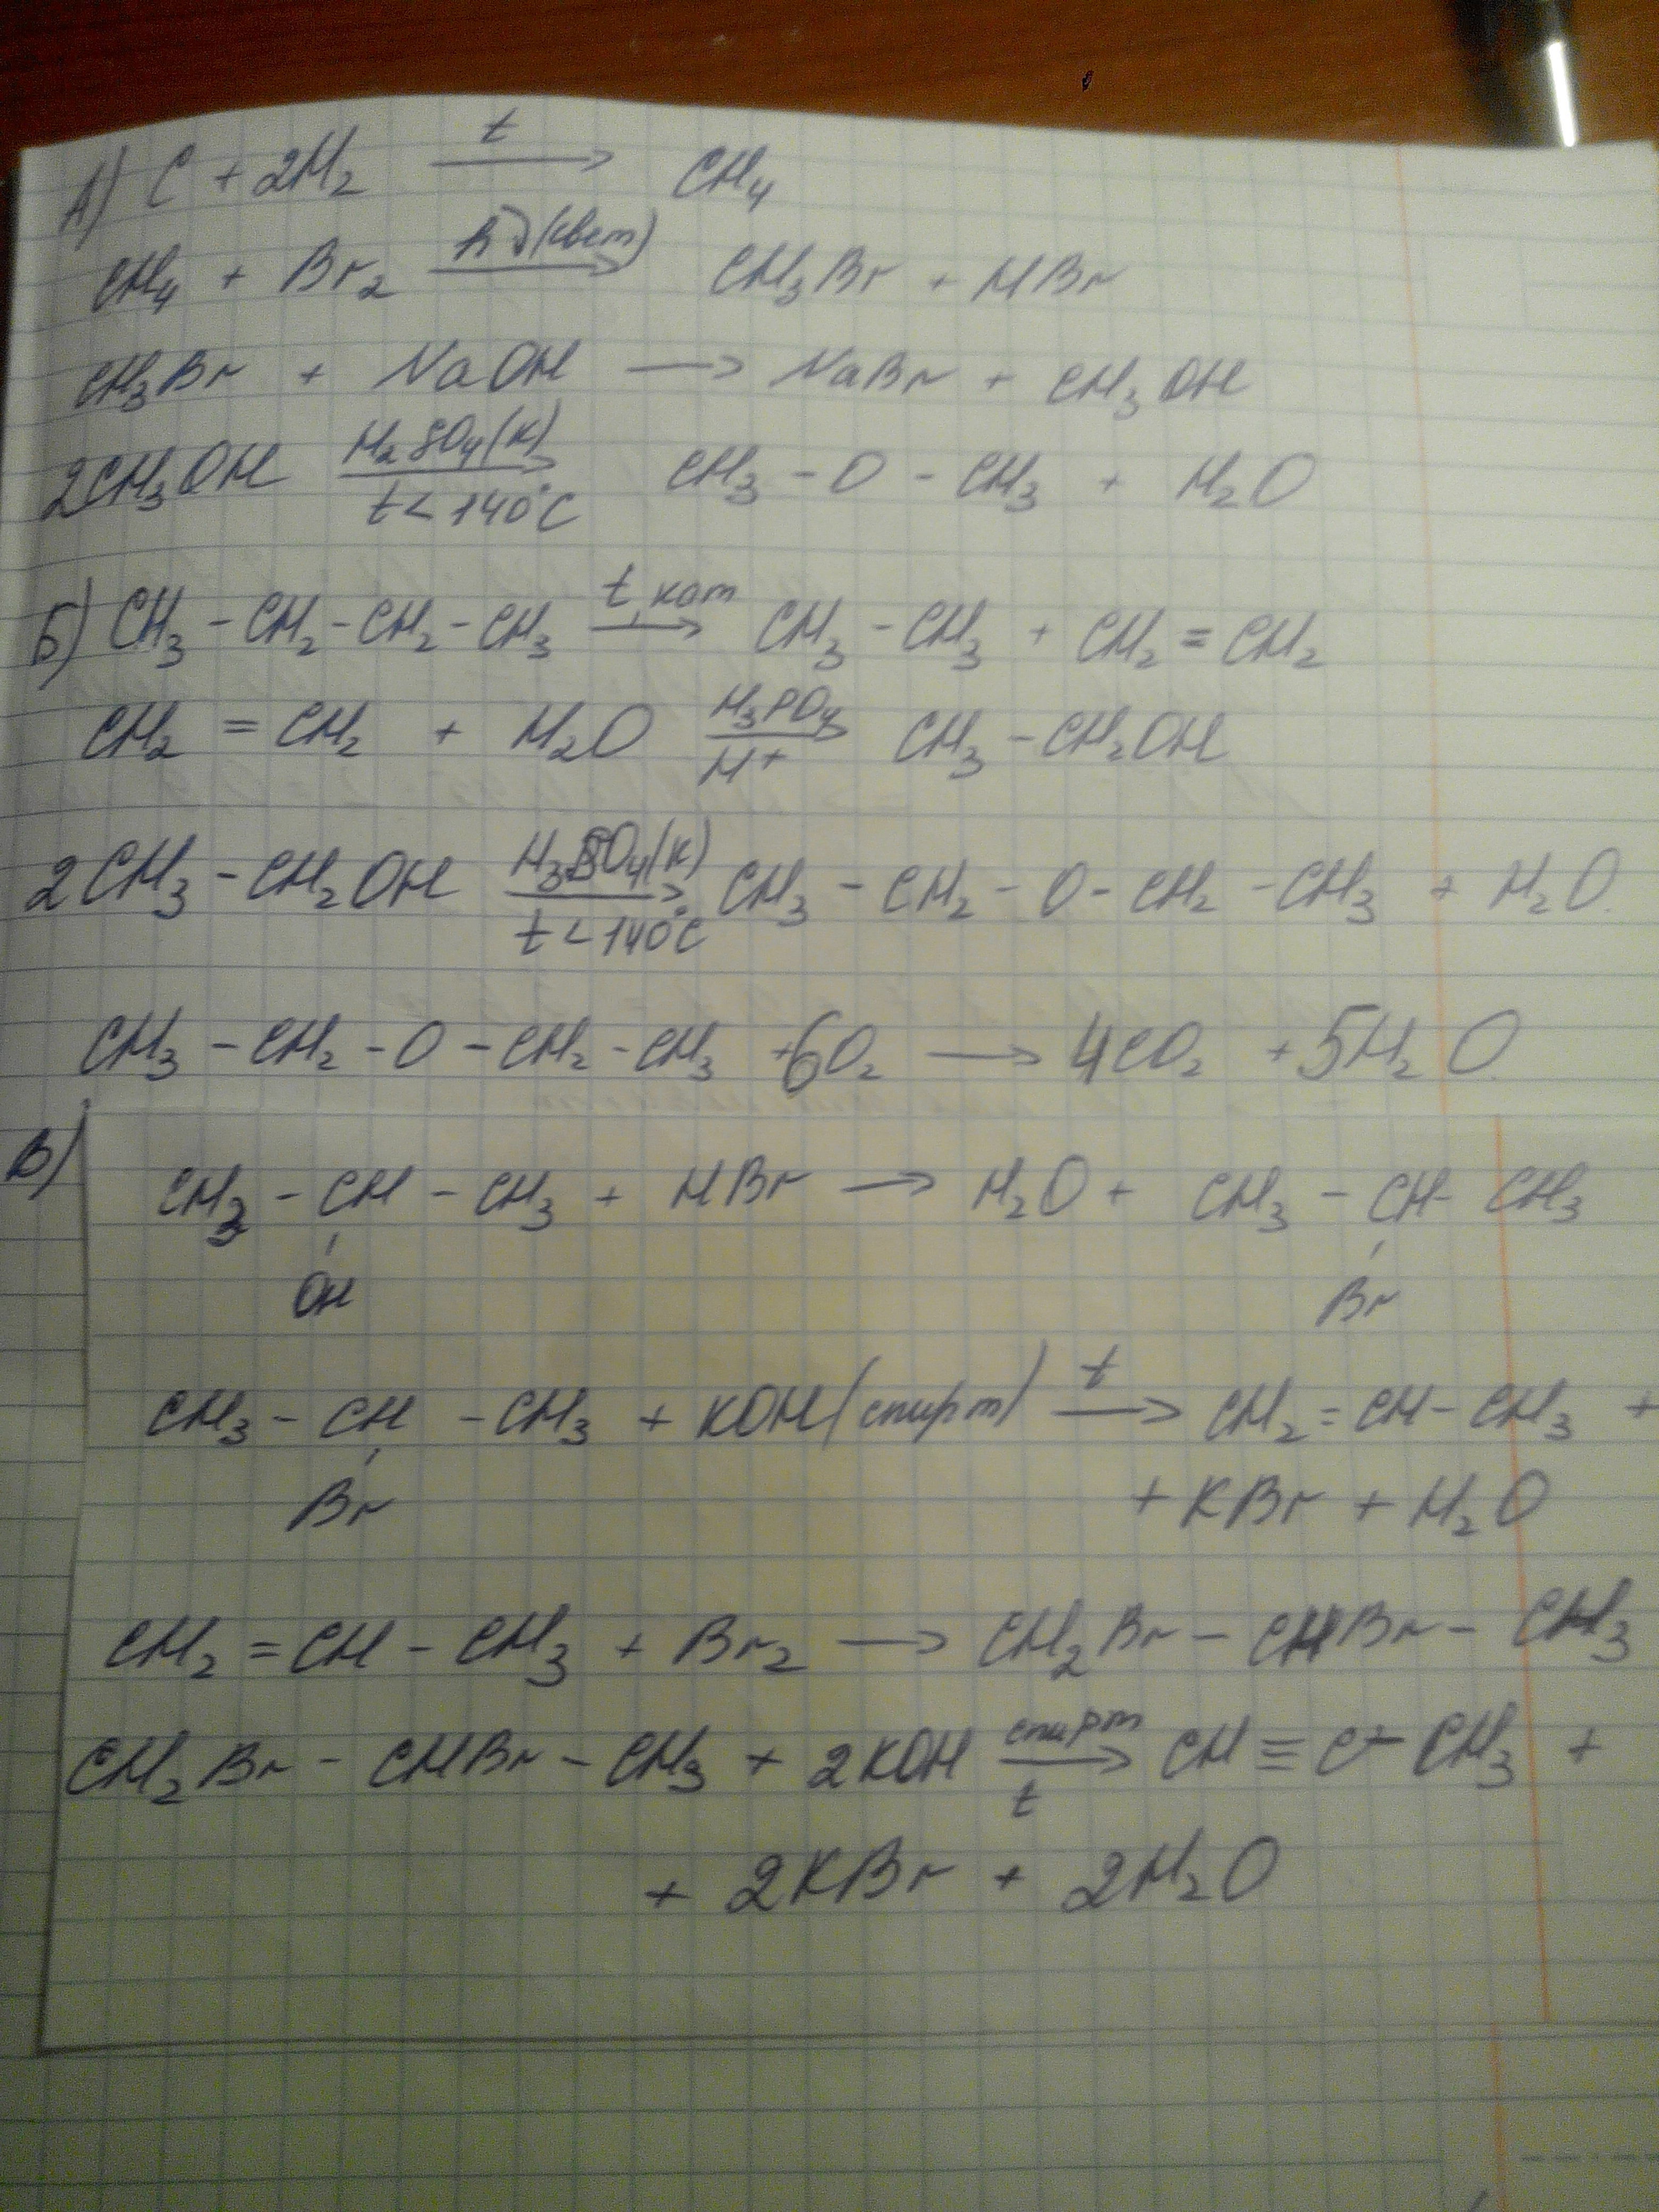 А) C + 2H₂ —t→ CH₄
CH₄ + Br₂ —hν(свет)→ CH₃Br + HBr
CH₃Br + NaOH → NaBr + CH₃OH
2CH₃OH —H₂SO₄(к), t<140°C→ CH₃ – O – CH₃ + H₂O
Б) CH₃ – CH₂ – CH₂ – CH₃ —t, кат→ CH₃ – CH₃ + CH₂ = CH₂
CH₂ = CH₂ + H₂O —H₃PO₄, H⁺→ CH₃ – CH₂OH
2CH₃ – CH₂OH —H₃SO₄(к), t<140°C→ CH₃ – CH₂ – O – CH₂ – CH₃ + H₂O.
CH₃ – CH₂ – O – CH₂ – CH₃ + 6O₂ → 4CO₂ + 5H₂O
В)
CH₃ – CH – CH₃ + HBr → H₂O + CH₃ – CH – CH₃
OH Br
CH₃ – CH – CH₃ + KOH(спирт) —t→ CH₂ = CH – CH₃ +
Br + KBr + H₂O
CH₂ = CH – CH₃ + Br₂ → CH₂Br – CHBr – CH₃
CH₂Br – CHBr – CH₃ + 2KOH —спирт, t→ CH ≡ C – CH₃ +
+ 2KBr + 2H₂O